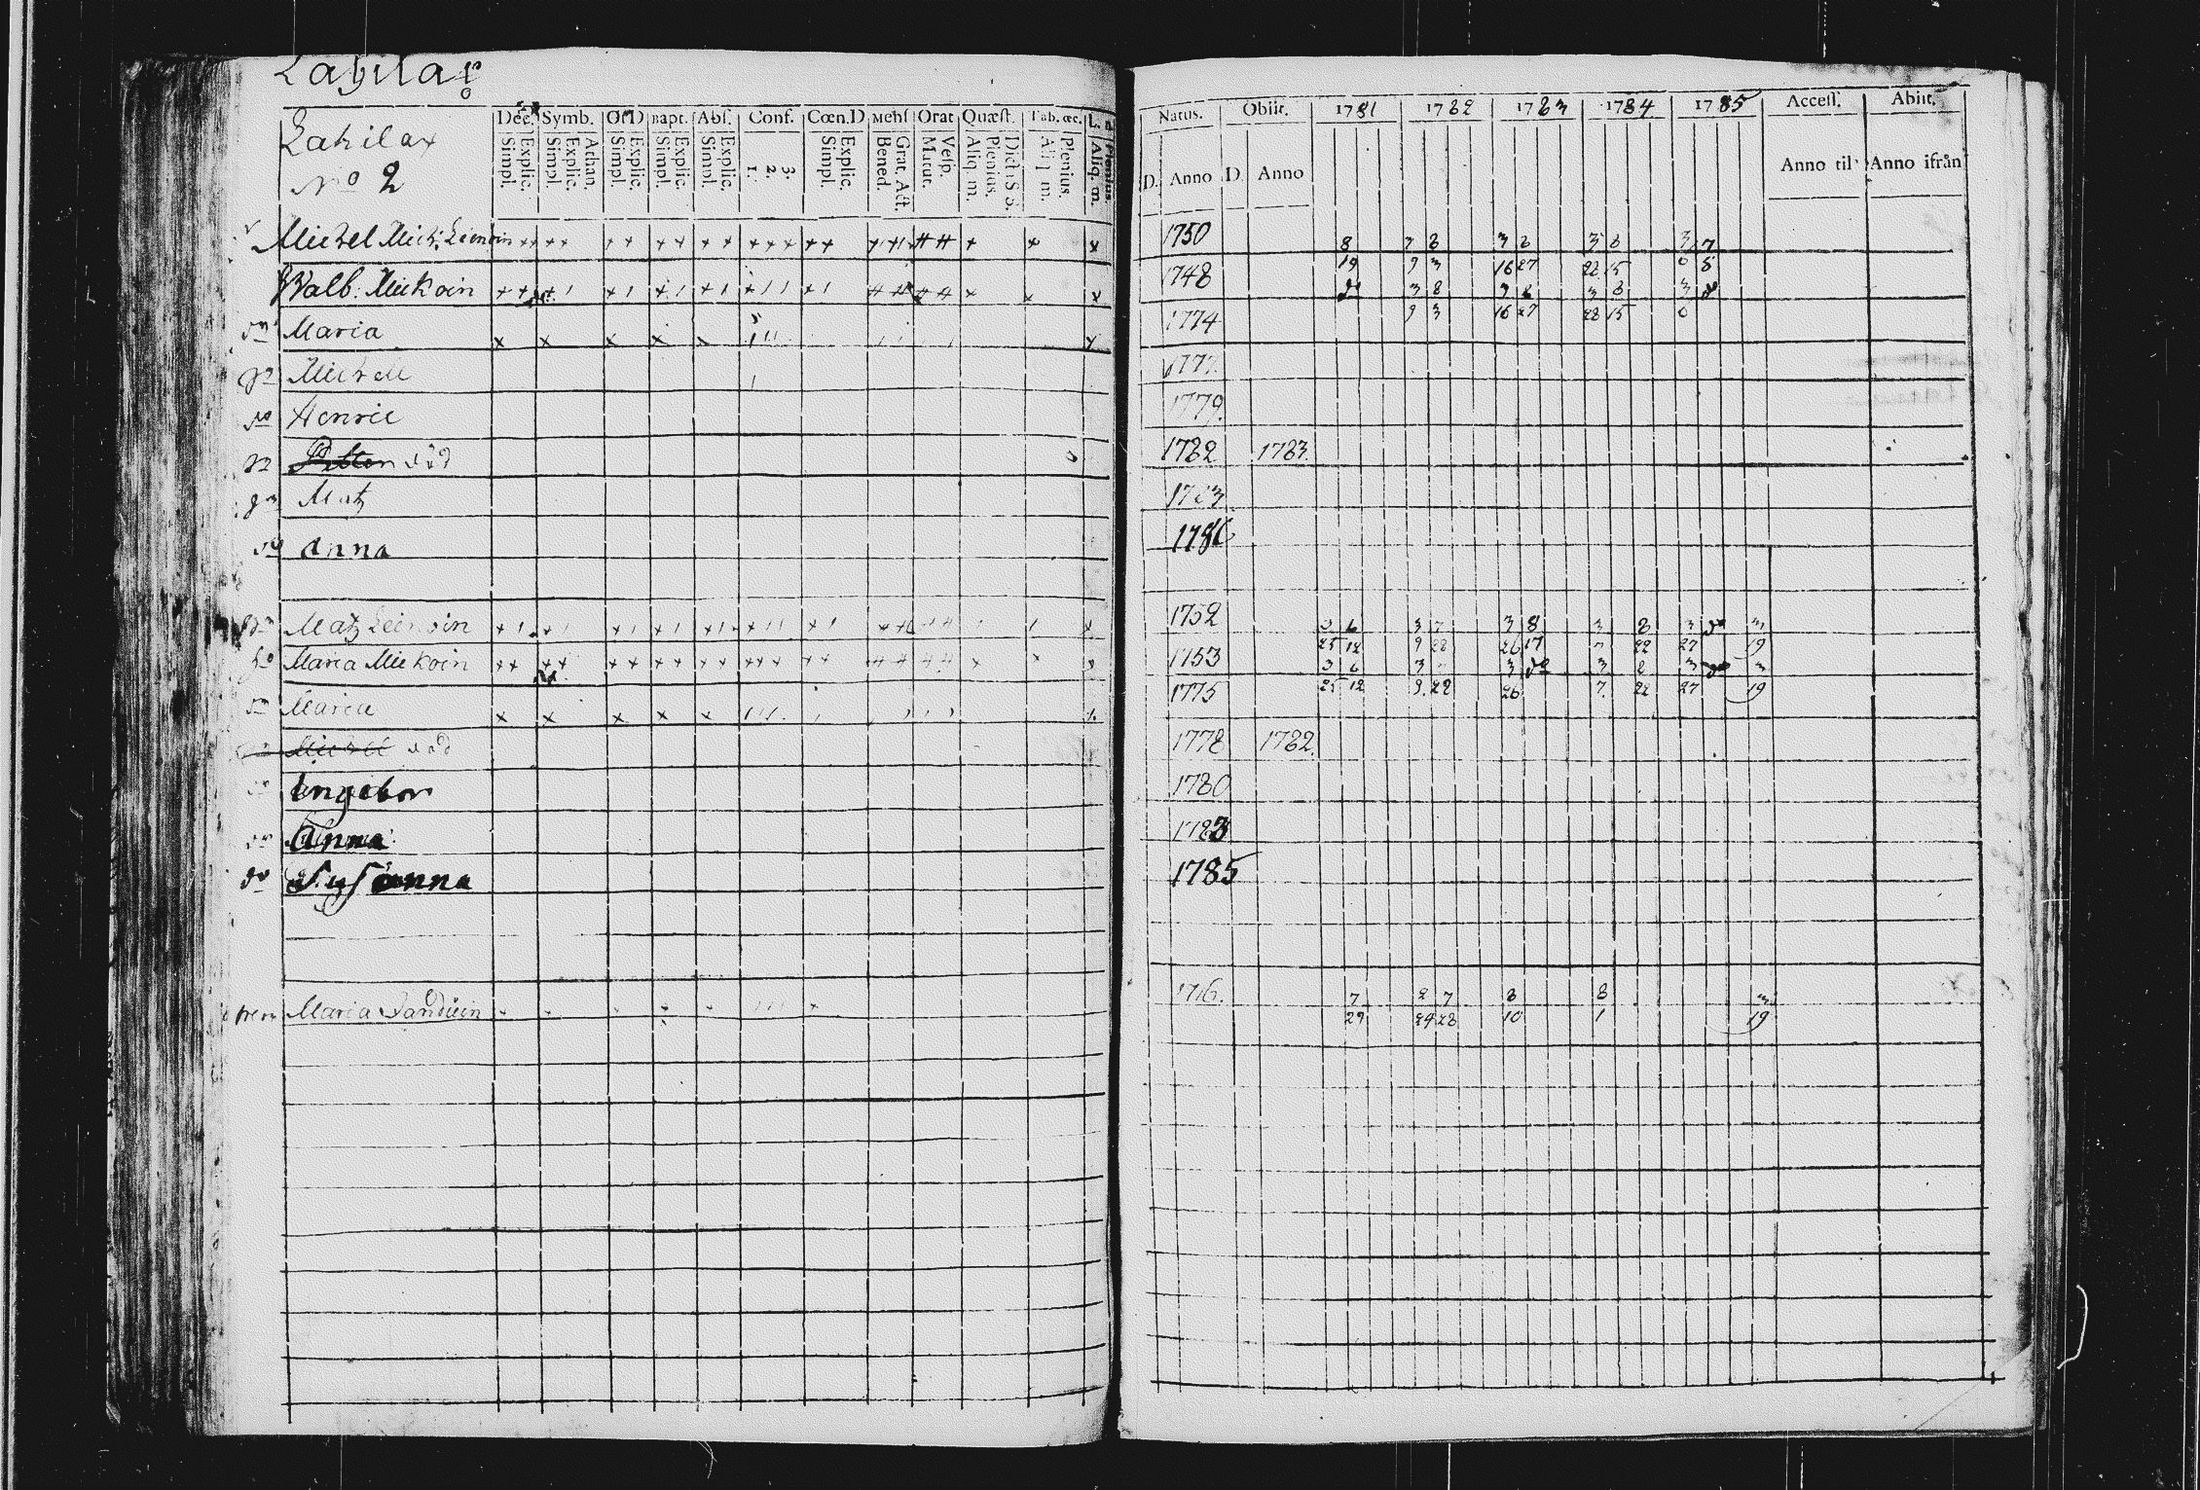 Lahilax
Dec. Symb. Or.D Bapt. Abs. Conf. Cœn.D Mens Orat Quæst. Tab. œc.
Lahilax
No 2
Explic. Simpl. Athan. Explic. Simpl. Explic. Simpl. Explic. Simpl. Explic. Simpl. 3. 2. 1. Explic. Simpl. Grat. Act. Bened. Vesp. Matut. Dict. S S. Plenius. Aliq m. Plenius. Aliq m. Plenius. Aliq. m.
Natus. Obiit. 1781 1782 1783 1784 1785 Access. Abiit.
D. Anno D. Anno Anno til Anno ifrån
Michel Mich: Leinoin 1750 8 3 8 3 8 3 8 3 7
19 9 3 16 27 22 15
Walb. Mickoin 1748 3 8 3 8 3 8
9 3 16 27 28 15
Maria 1774
Michell 1777.
Henric 1779.
Petter död 1782 1783.
Matz 1783
Anna 1786
Matz Leinoin 1752 3 6 3 7 3 8 3 8 3 3
25 12 9 28 26 17 7 22 27 19
Maria Mickoin 1753 3 6 3 3 3 8 3 3
25 12 9. 22 26 7. 22 27 19
Maria 1775
Michel död 1778 1782.
Ingebor 1780
Anna 1783
Susanna 1785
Maria 1716. 7 2 7 8 8 3
29 24 28 10 1 19